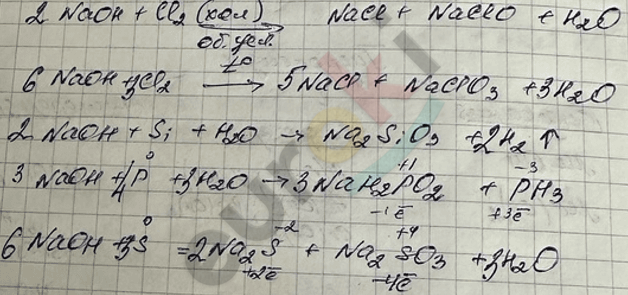 2 NaOH + Cl2 (хол) / об. усл. → NaCl + NaClO + H2O
6 NaOH + 3Cl2 t° → 5NaCl + NaClO3 + 3H2O
2 NaOH + Si + H2O → Na2SiO3 + 2H2 ↑
3 NaOH + 4P⁰ + 3H2O → 3NaH2P⁺¹O2 + P⁻³H3
-1ē +3ē
6 NaOH + 3S⁰ = 2Na2S⁻² + Na2S⁺⁴O3 + 3H2O
+2ē -4ē
euroki